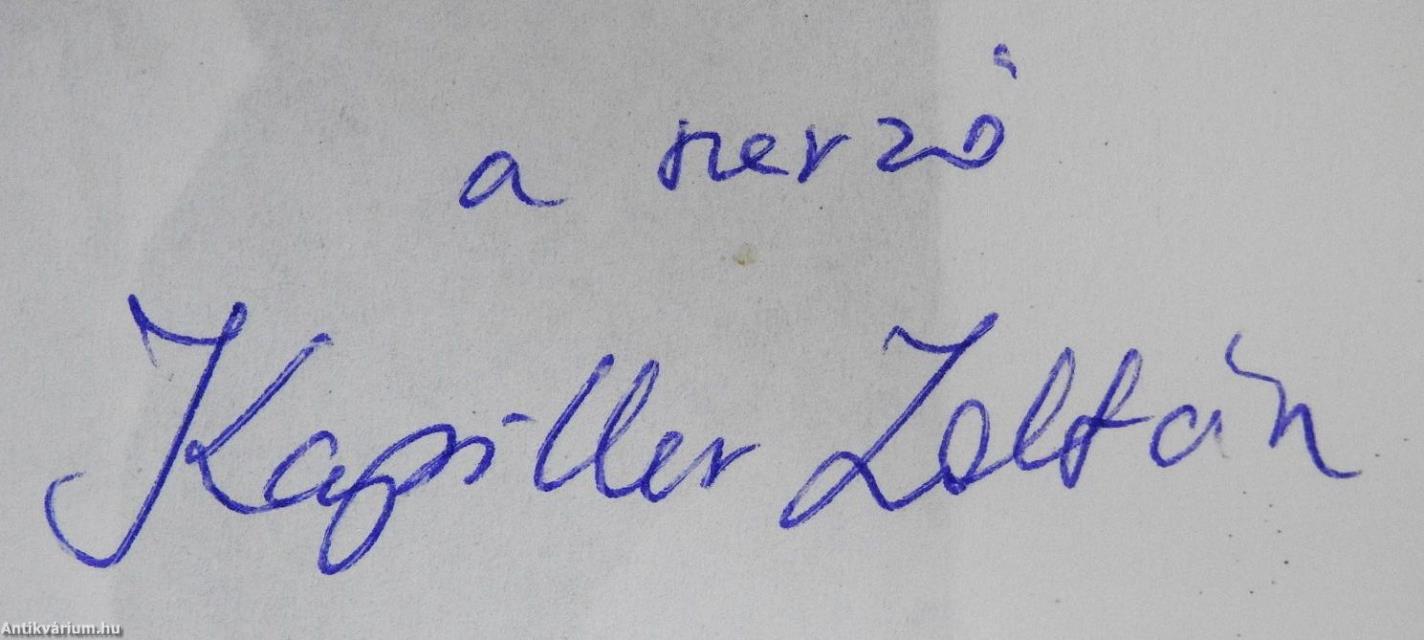 a szerző
Kapiller Zoltán
Antikvárium.hu